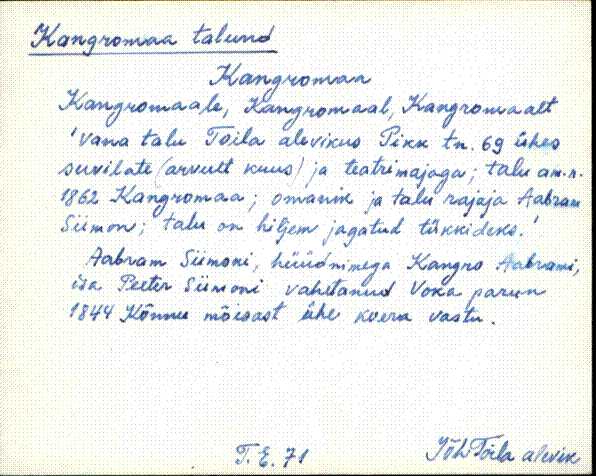 Kangromaa talund
Kangromaa
Kangromaale, Kangromaal, Kangromaalt
'Vana talu Toila alevikus Pikk tn. 69 ühes
suvilate (arvult kuus) ja teatrimajaga; talu am.n.
1862 Kangromaa; omanik ja talu rajaja Aabram
Siimon; talu on hiljem jagatud tükkideks.'
Aabram Siimoni, hüüdnimega Kangro Aabrami,
isa Peeter Siimoni vahetanud Voka parun
1844 Kõnnu mõisast ühe koera vastu.
T. E. 71
Jõh Toila alevik